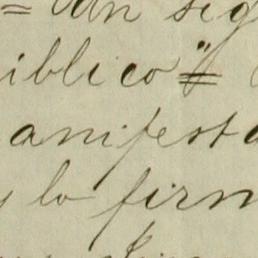 = van sig
iblico"=
anifesta
y lo firm